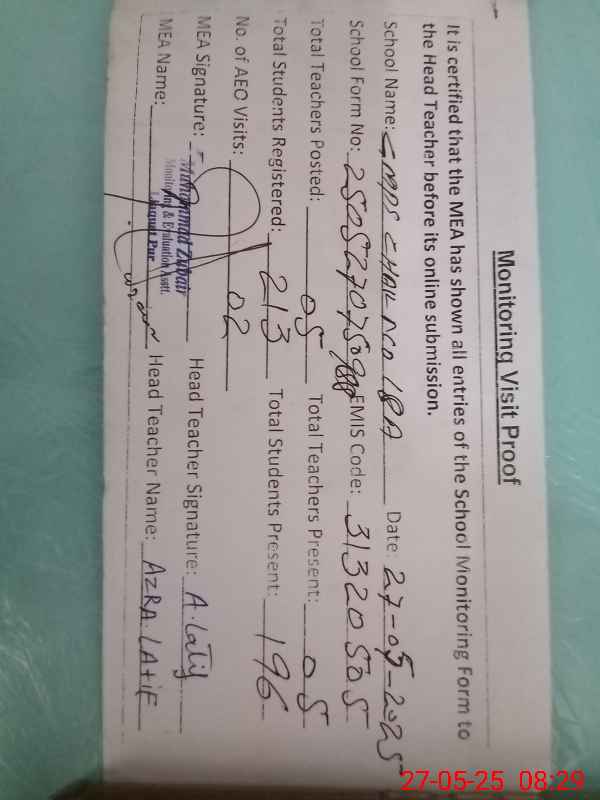 Monitoring Visit Proof
It is certified that the MEA has shown all entries of the School Monitoring Form to
the Head Teacher before its online submission.
School Name: GMPS CHAK NO 18A Date: 27-05-2025
School Form No: 2505270750900 EMIS Code: 31320505
Total Teachers Posted: 05 Total Teachers Present: 05
Total Students Registered: 213 Total Students Present: 196
No. of AEO Visits: 02
MEA Signature: Head Teacher Signature: A.Latif
Muhammad Zubair
Monitoring & Evaluation Asstt.
Liaquat Pur
MEA Name: Head Teacher Name: AZRA.LAtiF
27-05-25 08:29